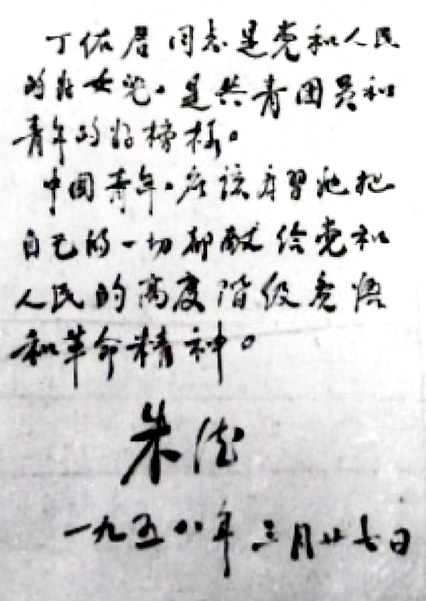 丁佑君同志是党和人民
的好女儿。是共青团员和
青年的好榜样。
中国青年。应该学习她把
自己的一切都献给党和
人民的高度阶级觉悟
和革命精神。
朱德
一九五八年三月廿七日